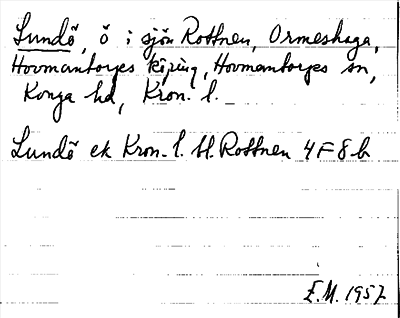 Lundö, ö i sjön Rottnen, Ormeshaga,
Hovmantorps köping, Hovmantorps sn,
Konga hd, Kron. l.
Lundö ek Kron. l. bl. Rottnen 4F8b
E.M. 1957